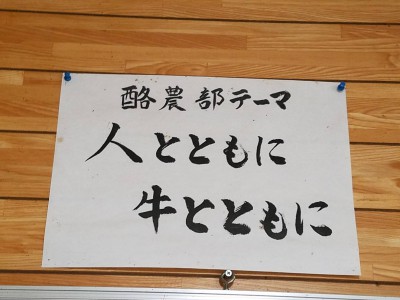 酪農部テーマ
人とともに
牛とともに